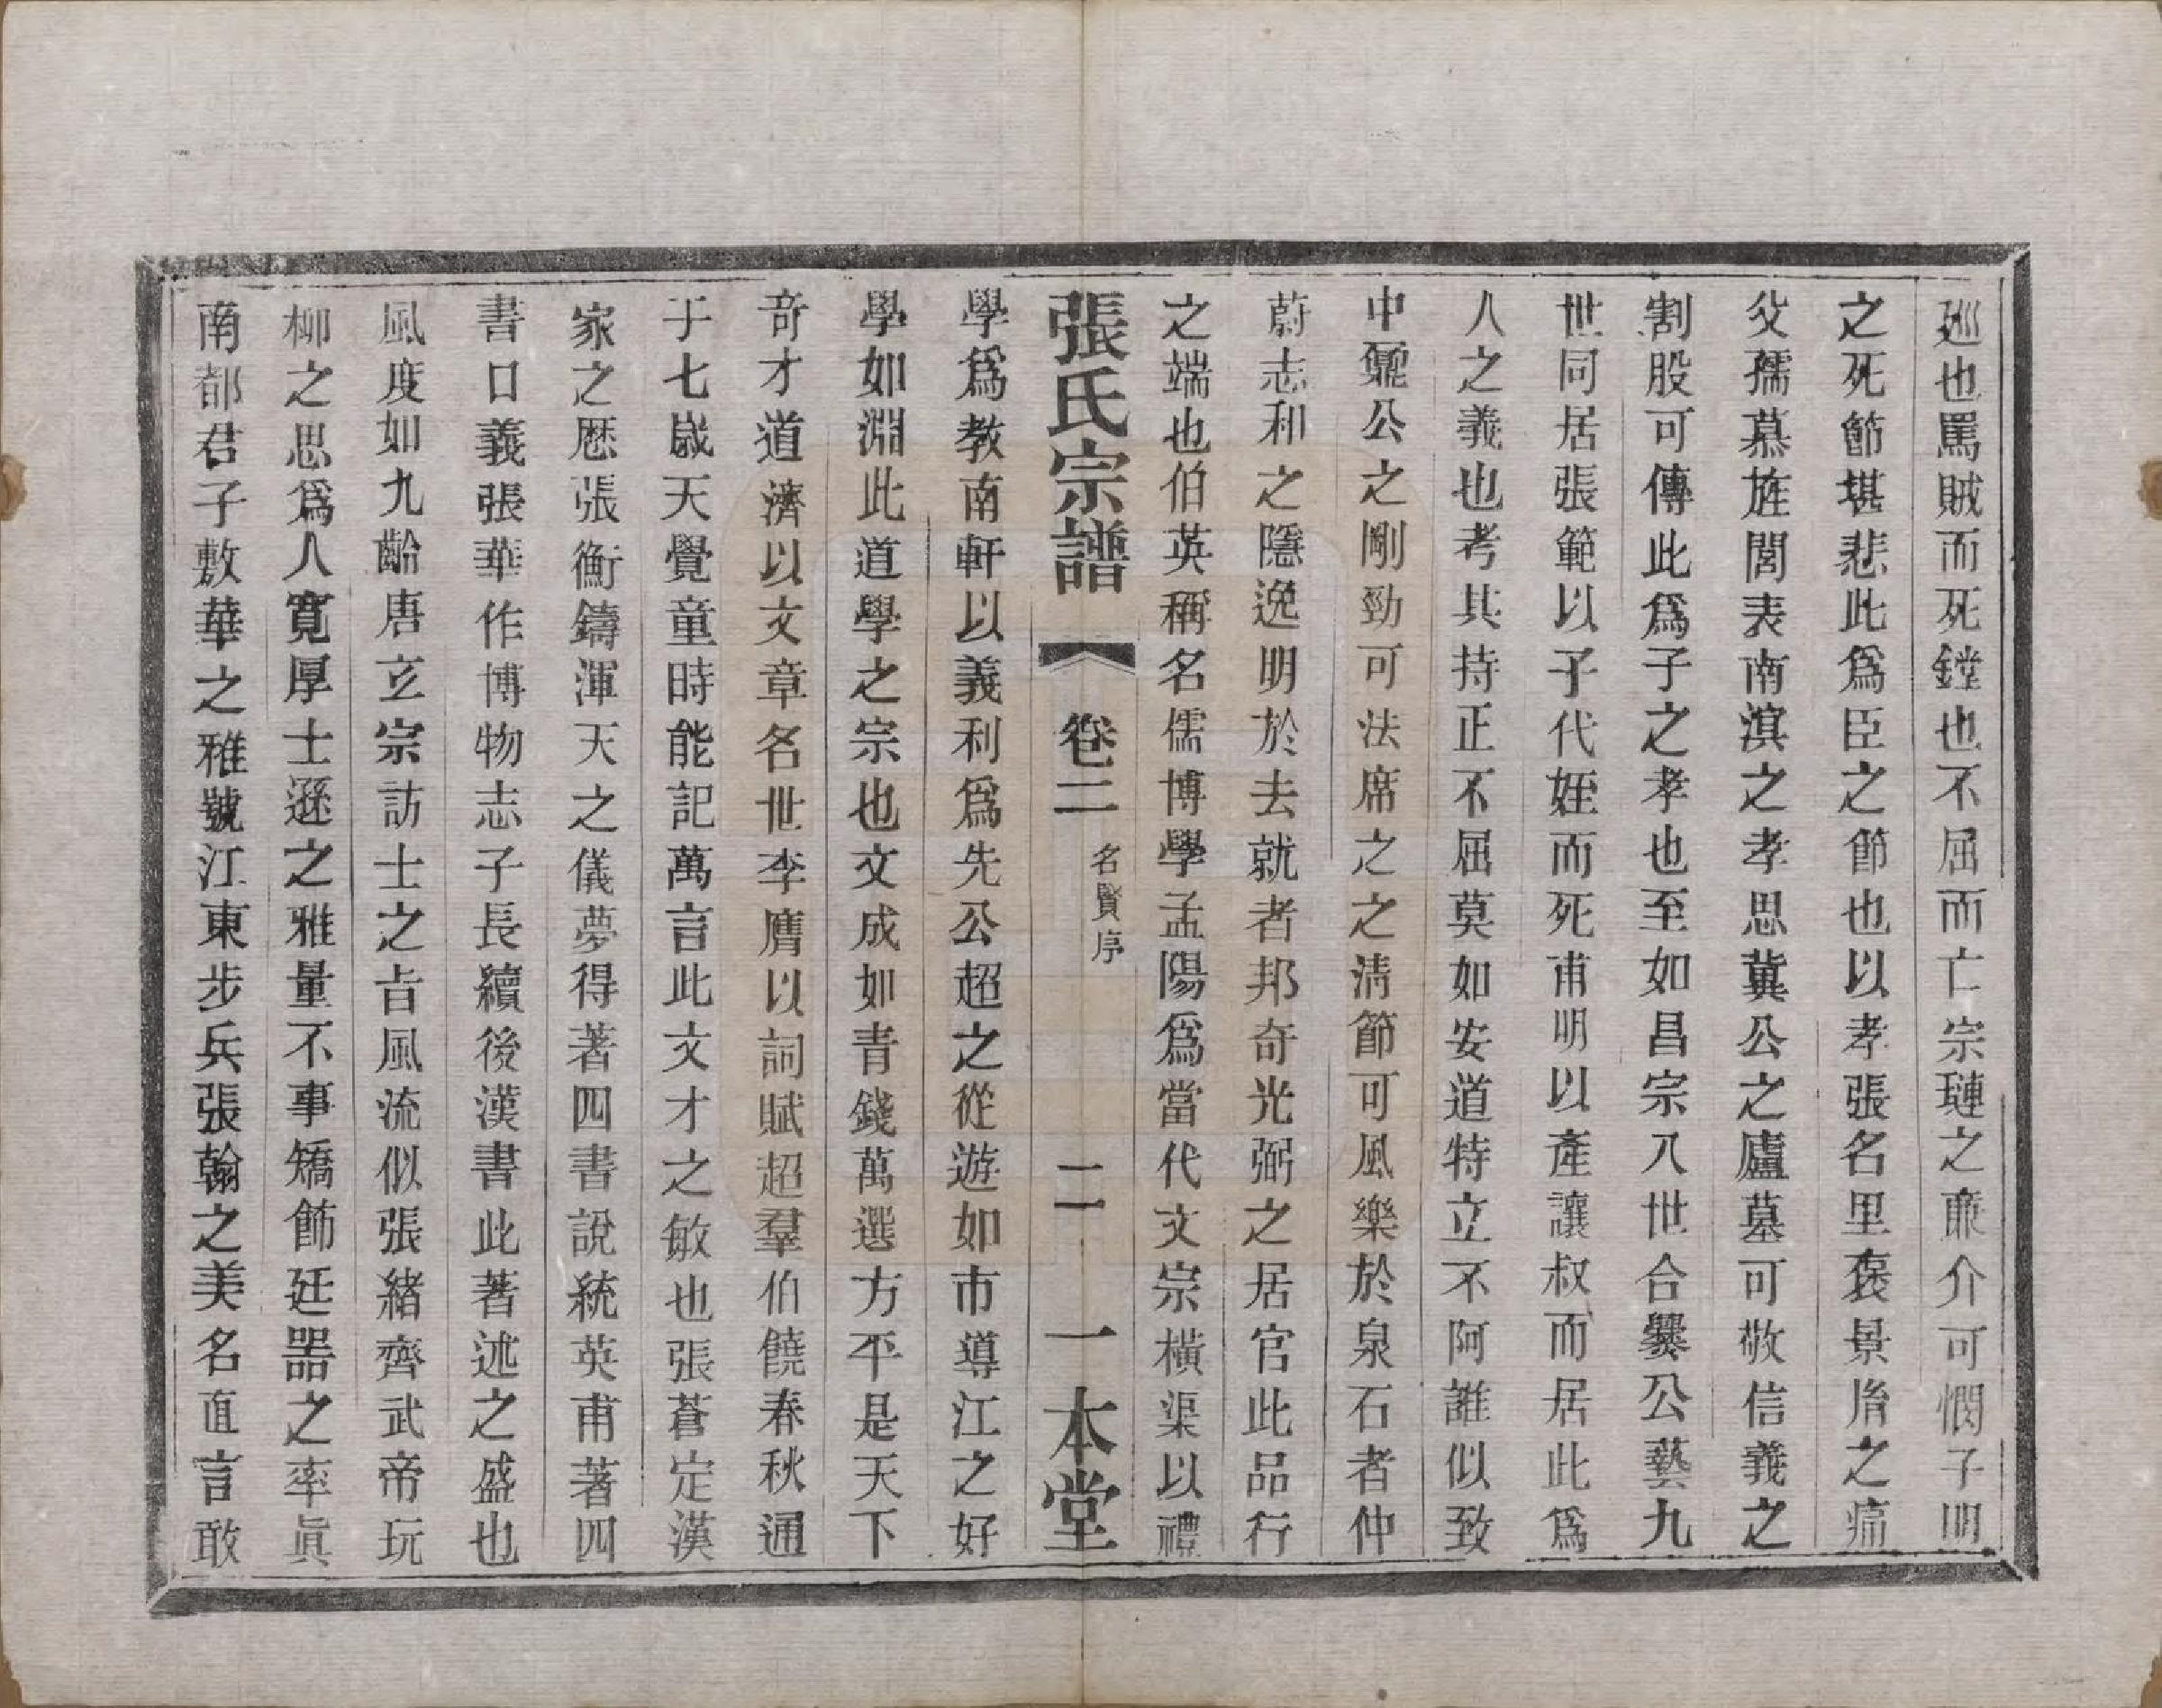 廵也罵賊而死鏜也不屈而亡宗璉之亷介可憫子明
之死節堪悲此爲臣之節也以孝張名里褒景胤之痛
父孺慕旌閭表南濱之孝思冀公之廬墓可敬信義之
割股可傳此爲子之孝也至如昌宗八世合爨公藝九
世同居張範以子代姪而死甫明以產讓叔而居此爲
人之義也考其持正不屈莫如安道特立不阿誰似致
中鄭公之剛勁可法席之之清節可風樂於泉石者仲
蔚志和之隱逸明於去就者邦奇光弼之居官此品行
之端也伯英稱名儒博學孟陽爲當代文宗橫渠以禮
張氏宗譜 卷二 名賢序 二 一本堂
學爲教南軒以義利爲先公超之從遊如市導江之好
學如淵此道學之宗也文成如青錢萬選方平是天下
奇才道濟以文章名世李膺以詞賦超羣伯饒春秋通
于七歲天覺童時能記萬言此文才之敏也張蒼定漢
家之歷張衡鑄渾天之儀夢得著四書說統英甫著四
書口義張華作博物志子長續後漢書此著述之盛也
風度如九齡唐立宗訪士之旨風流似張緒齊武帝玩
柳之思爲人寬厚士遜之雅量不事矯飾廷器之率眞
南都君子敷華之雅號江東步兵張翰之美名直言敢